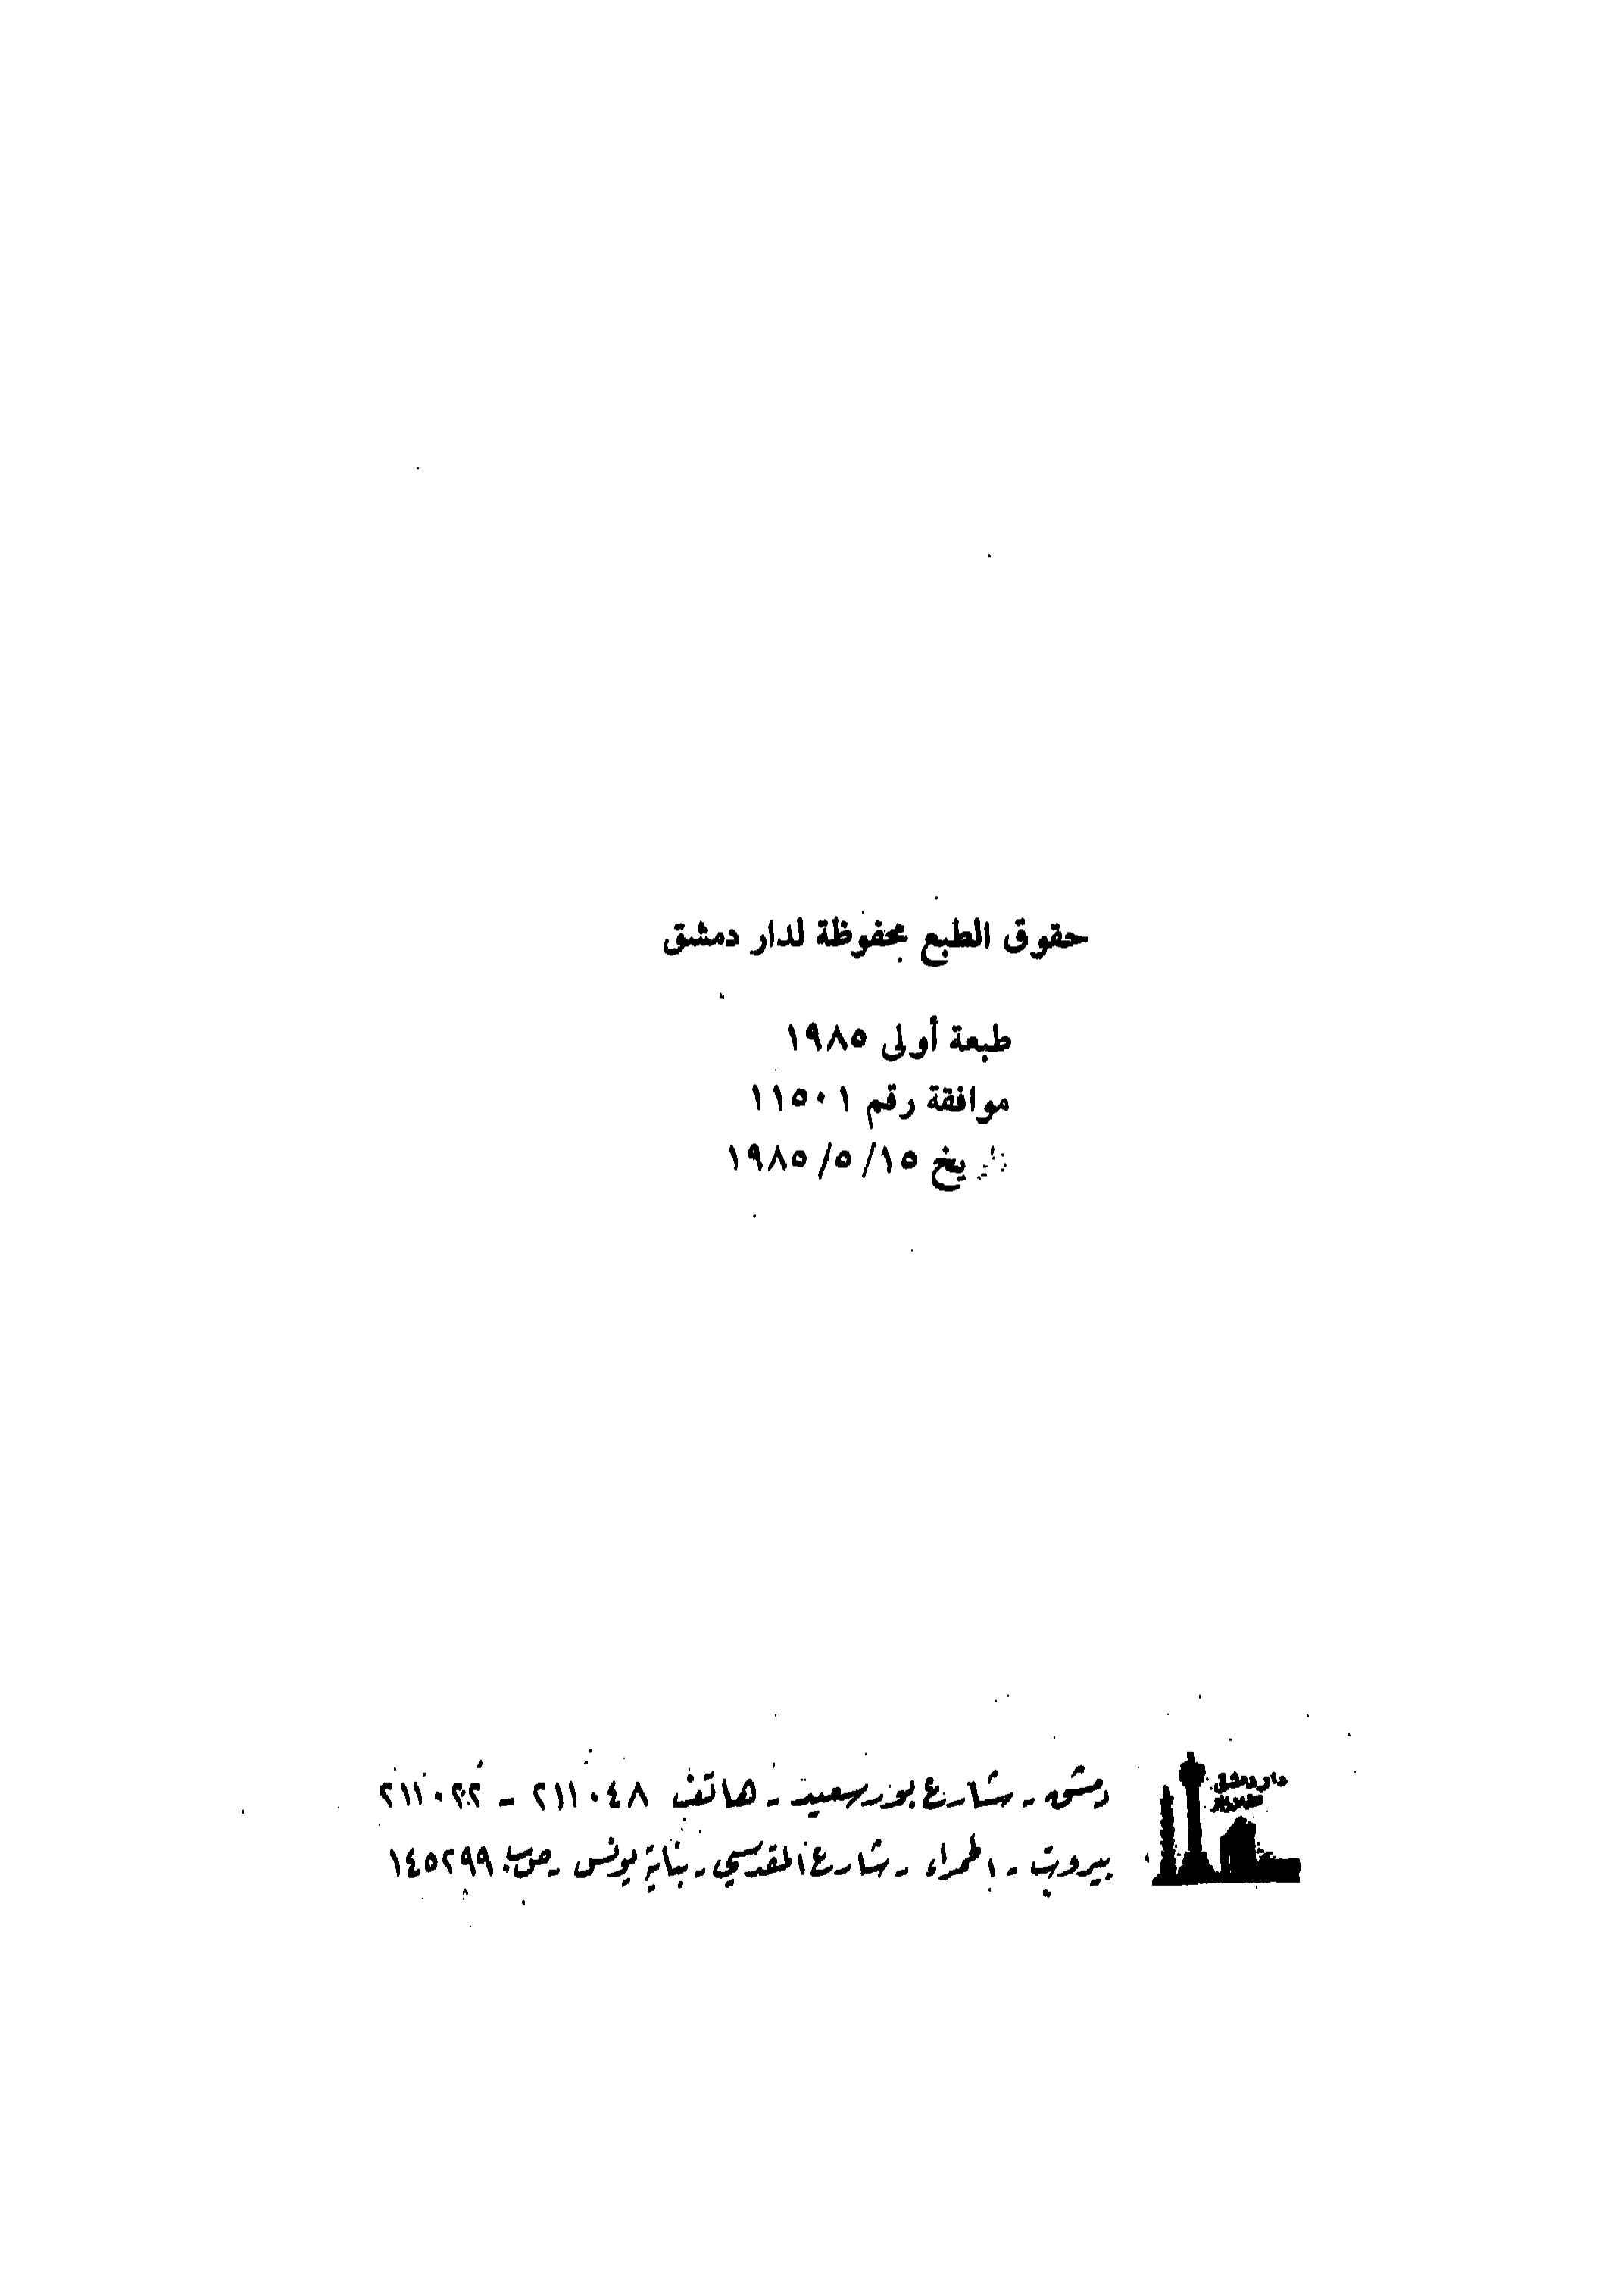 حقوق الطبع محفوظة لدار دمشق
طبعة أولى ١٩٨٥
موافقة رقم ١١٥٠١
تاريخ ١٥/٥/١٩٨٥
دار دمشق
دمشق - شارع بور سعيد - هاتف ٢١١٠٤٨ - ٢١١٠٢٢
بيروت - الحمراء - شارع المقدسي - بناية يونس - ص.ب ١٤٥٢٩٩